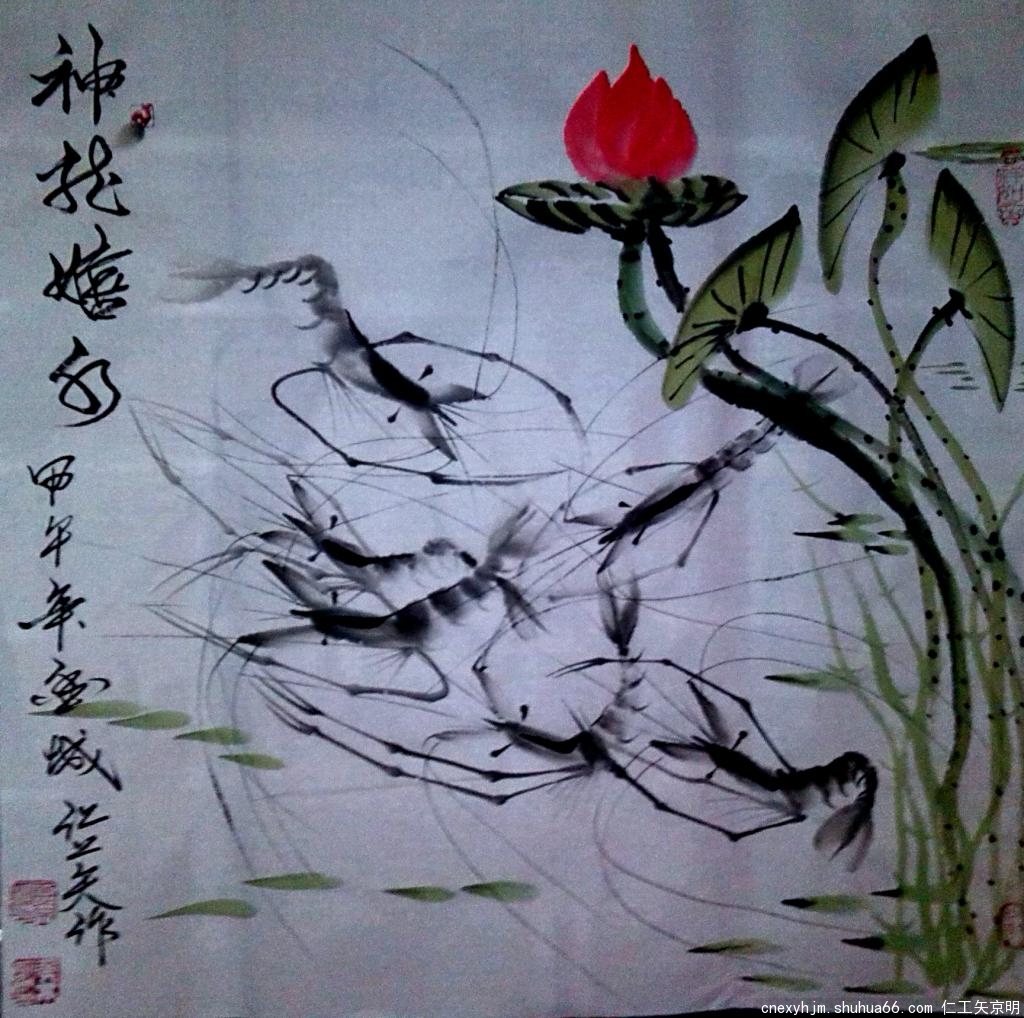 神龙嬉水
甲午年城仁工矢作
cnexyhjm.shuhua66.com 仁工矢京明